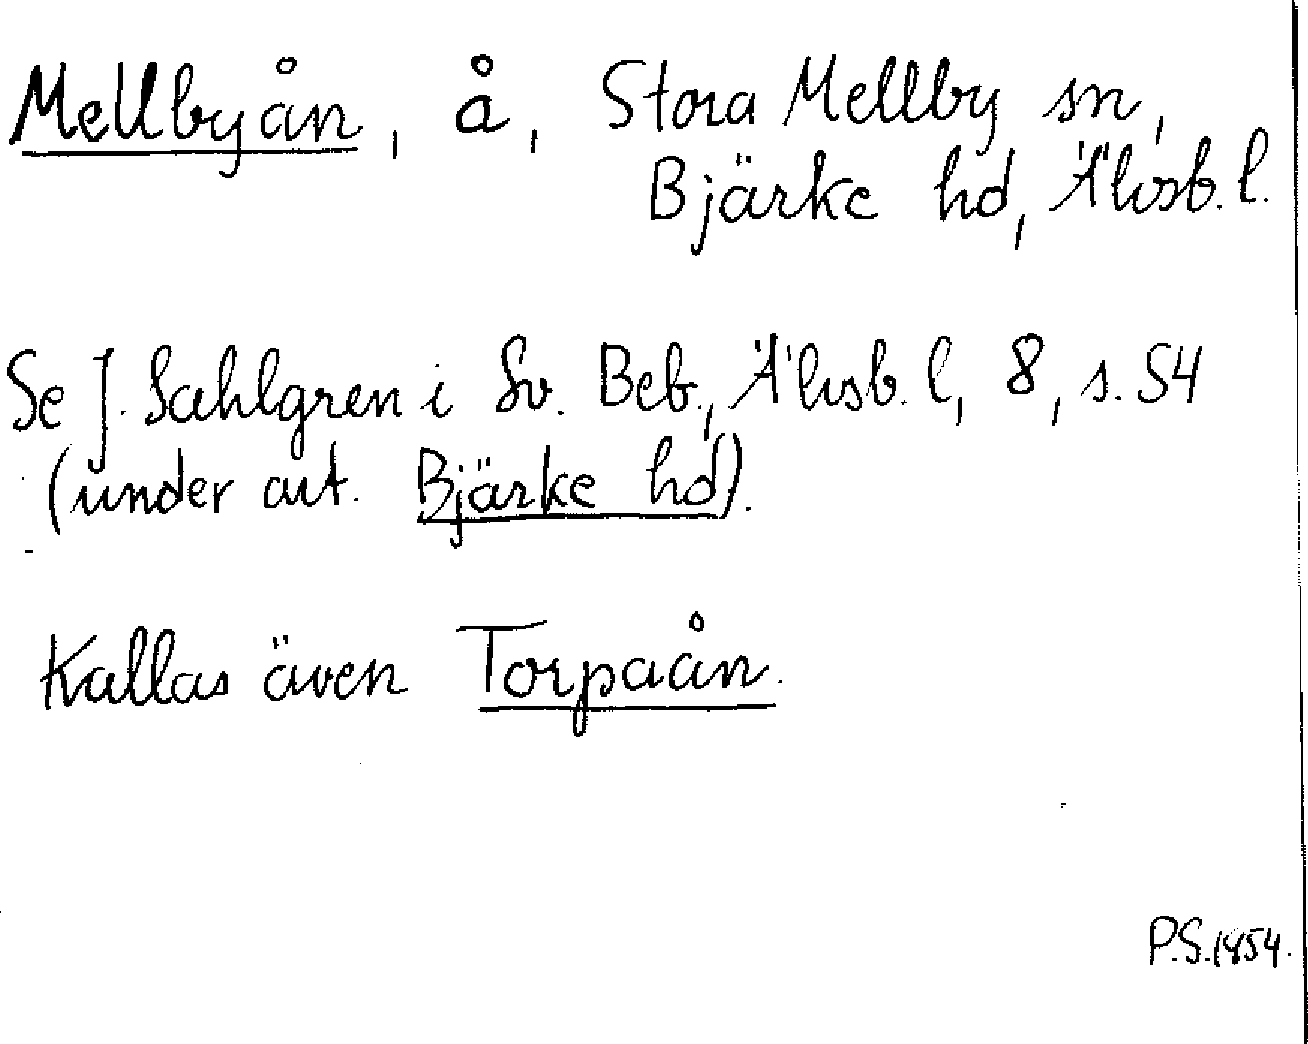 Mellbyån, å, Stora Mellby sn,
Bjärke hd, Älvsb. l.
Se J. Sahlgren i Sv. Beb., Älvsb. l, 8, s. 54
(under art. Bjärke hd).
Kallas även Torpaån.
P.S. 1954.